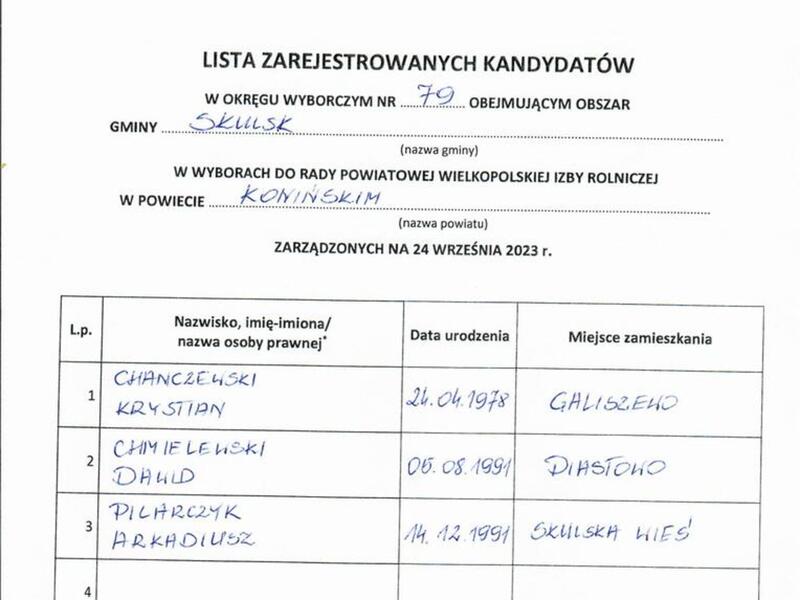 LISTA ZAREJESTROWANYCH KANDYDATÓW
W OKRĘGU WYBORCZYM NR 79 OBEJMUJĄCYM OBSZAR
GMINY SKULSK
(nazwa gminy)
W WYBORACH DO RADY POWIATOWEJ WIELKOPOLSKIEJ IZBY ROLNICZEJ
W POWIECIE KONIŃSKIM
(nazwa powiatu)
ZARZĄDZONYCH NA 24 WRZEŚNIA 2023 r.
L.p. Nazwisko, imię-imiona/ Data urodzenia Miejsce zamieszkania
nazwa osoby prawnej*
1 CHANCZEWSKI 24.04.1978 GALISZEWO
KRYSTIAN
2 CHMIELEWSKI 05.08.1991 PIASTOWO
DAWID
3 PILARCZYK 14.12.1991 SKULSKA WIEŚ
ARKADIUSZ
4